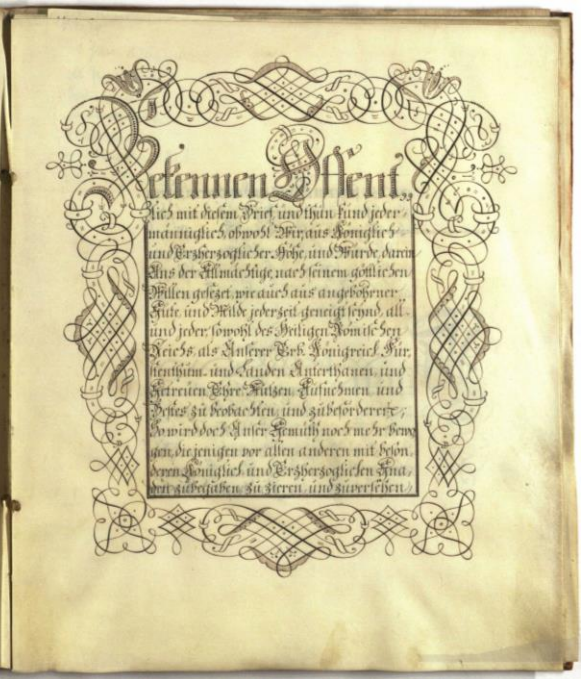 Bekennen Offent„
lich mit diesem Brief, und thun kund jeder-
männiglich, obwohl Wir, aus Königlich-
und Erzherzoglicher Höhe, und Würde, darein
Uns der Allmächtige, nach seinem göttlichen
Willen gesezet, wie auch aus angebohrner
Güte, und Milde jederzeit geneigt seynd, all-
und jeder, sowohl des Heiligen Römischen
Reichs, als Unserer Erb-Königreich, Für-
stenthum- und Landen Unterthanen, und
Getreuen Ehre, Nutzen, Aufnehmen, und
Bestes zu beobachten, und zubeförderen;
So wird doch Unser Gemüth noch mehr bewo-
gen, die jenigen vor allen anderen mit beson-
deren Königlich- und Erzherzoglichen Gna-
den zubegaben, zu zieren, und zuversehen,